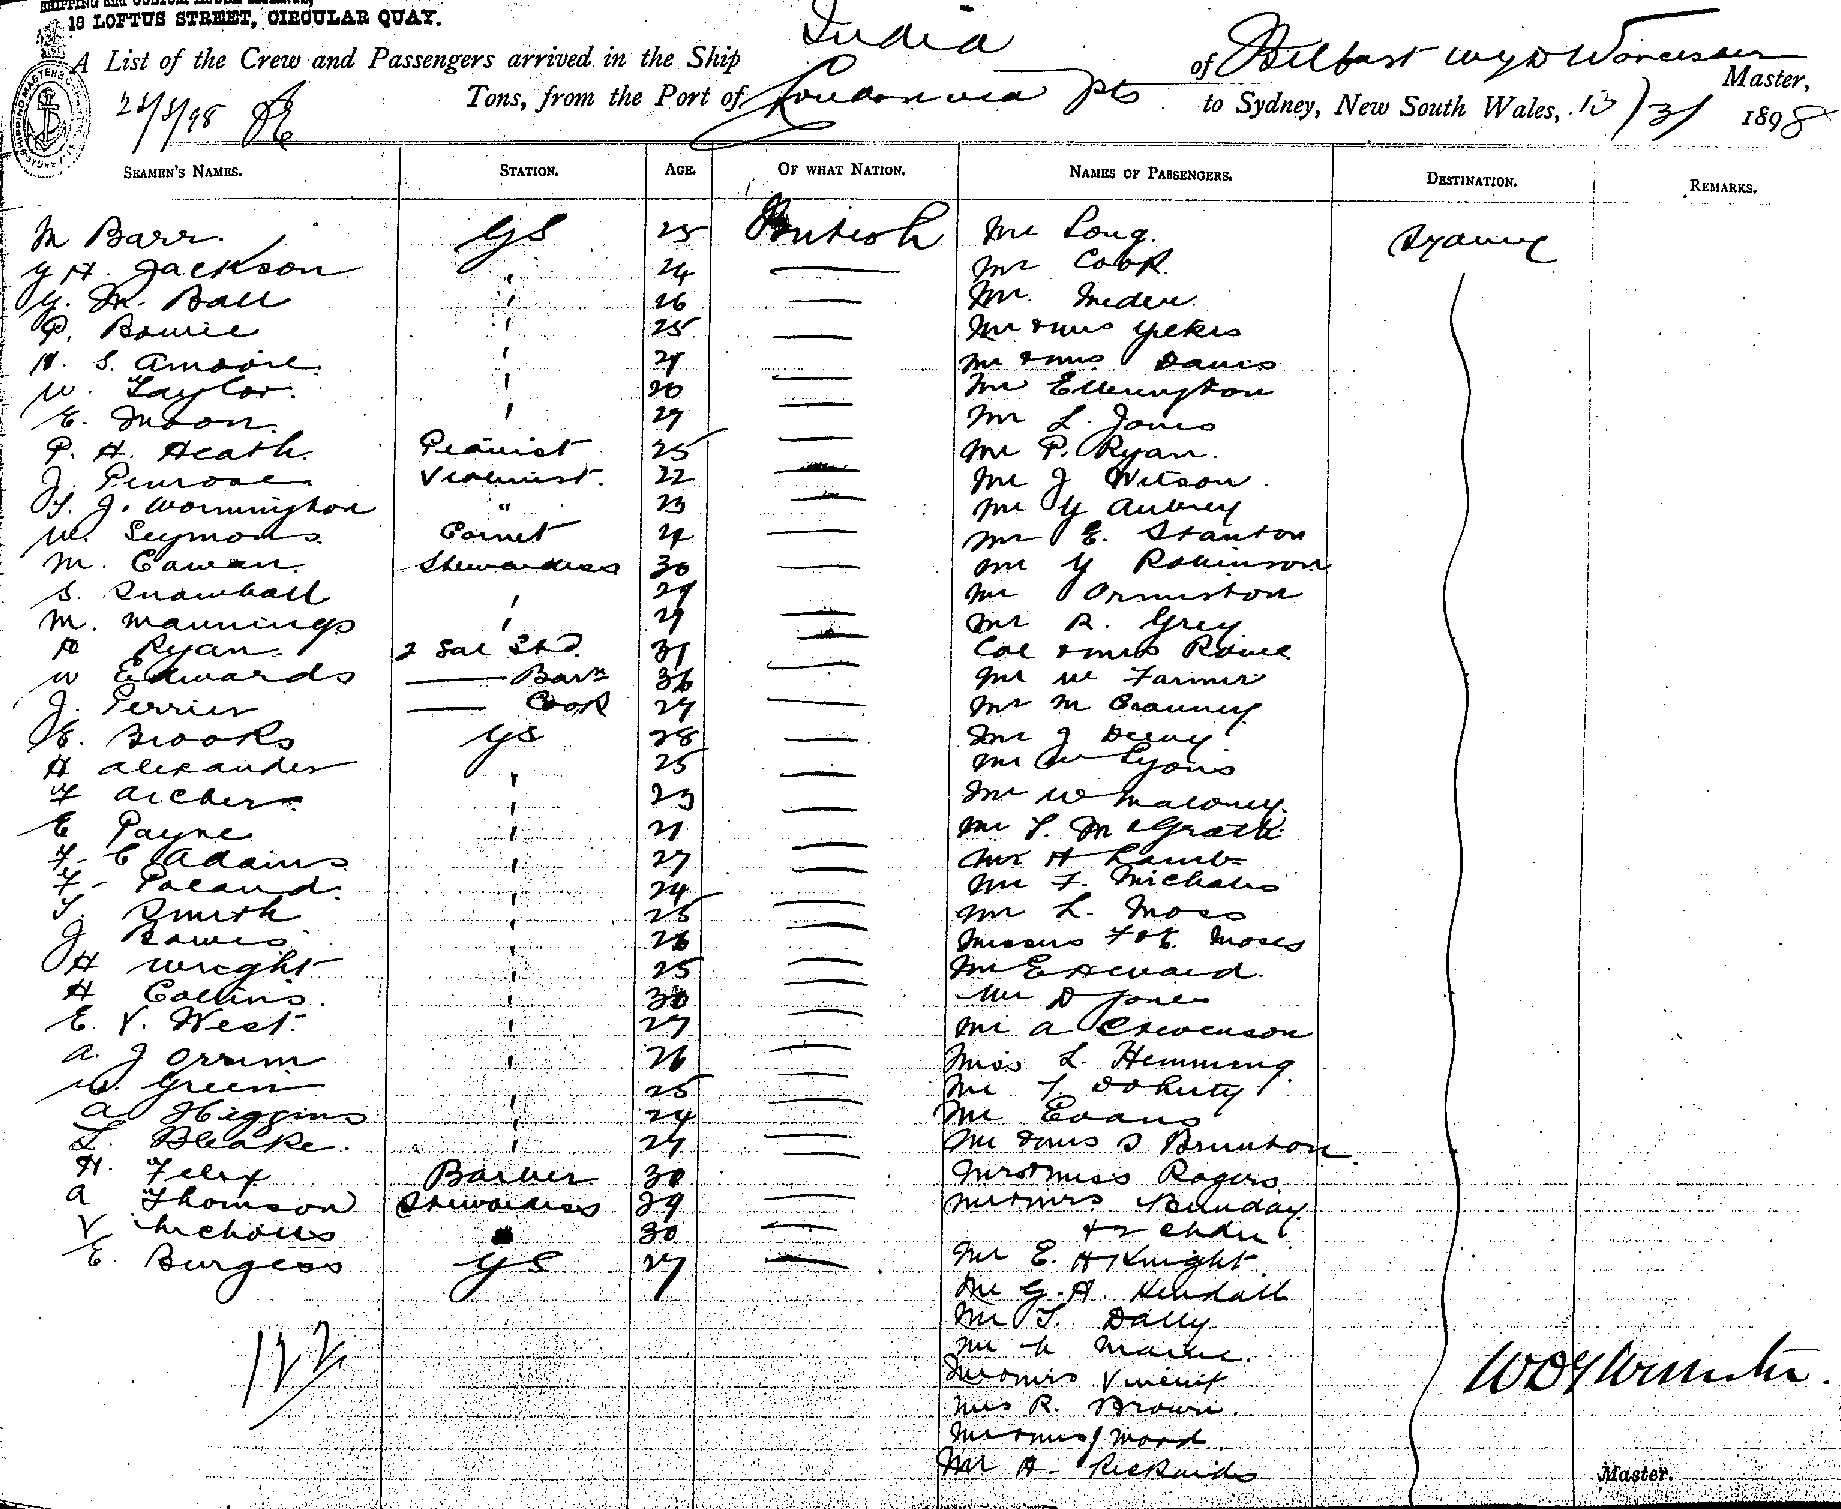 18 LOFTUS STREET, CIRCULAR QUAY.
India
A List of the Crew and Passengers arrived in the Ship of Belfast Master,
Tons, from the Port of London via pts to Sydney, New South Wales, 1898
SEAMEN'S NAMES. STATION. AGE. OF WHAT NATION. NAMES OF PASSENGERS. DESTINATION. REMARKS.
M Barr. GS 25 British Mr Long. Sydney
G H. Jackson ' 24 — Mr Cook
G. M. Ball ' 26 — Mr.
P. Bowie ' 25 — Mr & Mrs
H. S. Amoore ' — Mr & Mrs Davis
W. Taylor. ' 20 — Mr Ellerington
E. Moon. ' 27 — Mr L. Jones
P. H. Heath. Pianist 25 — Mr P. Ryan.
J. Penrose Violinist. 22 — Mr J Wilson.
J. Wormington " 23 — Mr G Aubrey
W. Seymons. Cornet — Mr E. Stanton
M. Cowan. Stewardess 30 — Mr G Robinson
S. Snowball ' 29 — Mr Ormiston
M. Mannings ' 29 — Mr R. Grey
Ryan. 2 Sal Std. 31 — Col & Mrs Rowe
W Edwards — 36 — Mr W Farmer
J. Perrier — Cook 27 — Mr M
E. Brooks GS 28 — Mr J
H Alexander ' 25 — Mr W Lyons
F Archer. ' 23 — Mr W Maloney.
E Payne ' 21 — Mr T. McGrath
F. C Adams ' 27 — Mr H Lamb
F. Poland. ' 24 — Mr F. Michalis
T. Smith ' 25 — Mr L. Moss
J Bowes ' 26 — Messrs F & E. Moses
H Wright ' 25 — Mr E Heward.
H Collins. ' 30 — Mr D Jones
E. V. West. ' 27 — Mr A Stevenson
A. J Orrum ' 26 — Miss L. Hemming.
W. Green ' 25 — Mr T. Doherty
A Higgins ' 24 — Mr Evans
L. Bleake. ' 27 — Mr & Mrs S Brunton.
H. Felix Barber 30 — Mrs & Miss Rogers
A Thomson Stewardess 39 — Mr & Mrs Bunday.
V Nicholls 30 — & 2 chdn
E. Burgess GS 27 — Mr E. H Knight
Mr G. H. Kendall
Mr T. Dally
Mr
Mr & Mrs Vincent
Mrs R. Brown.
Mr & Mrs J Wood
Mr H. Rickards
Master.